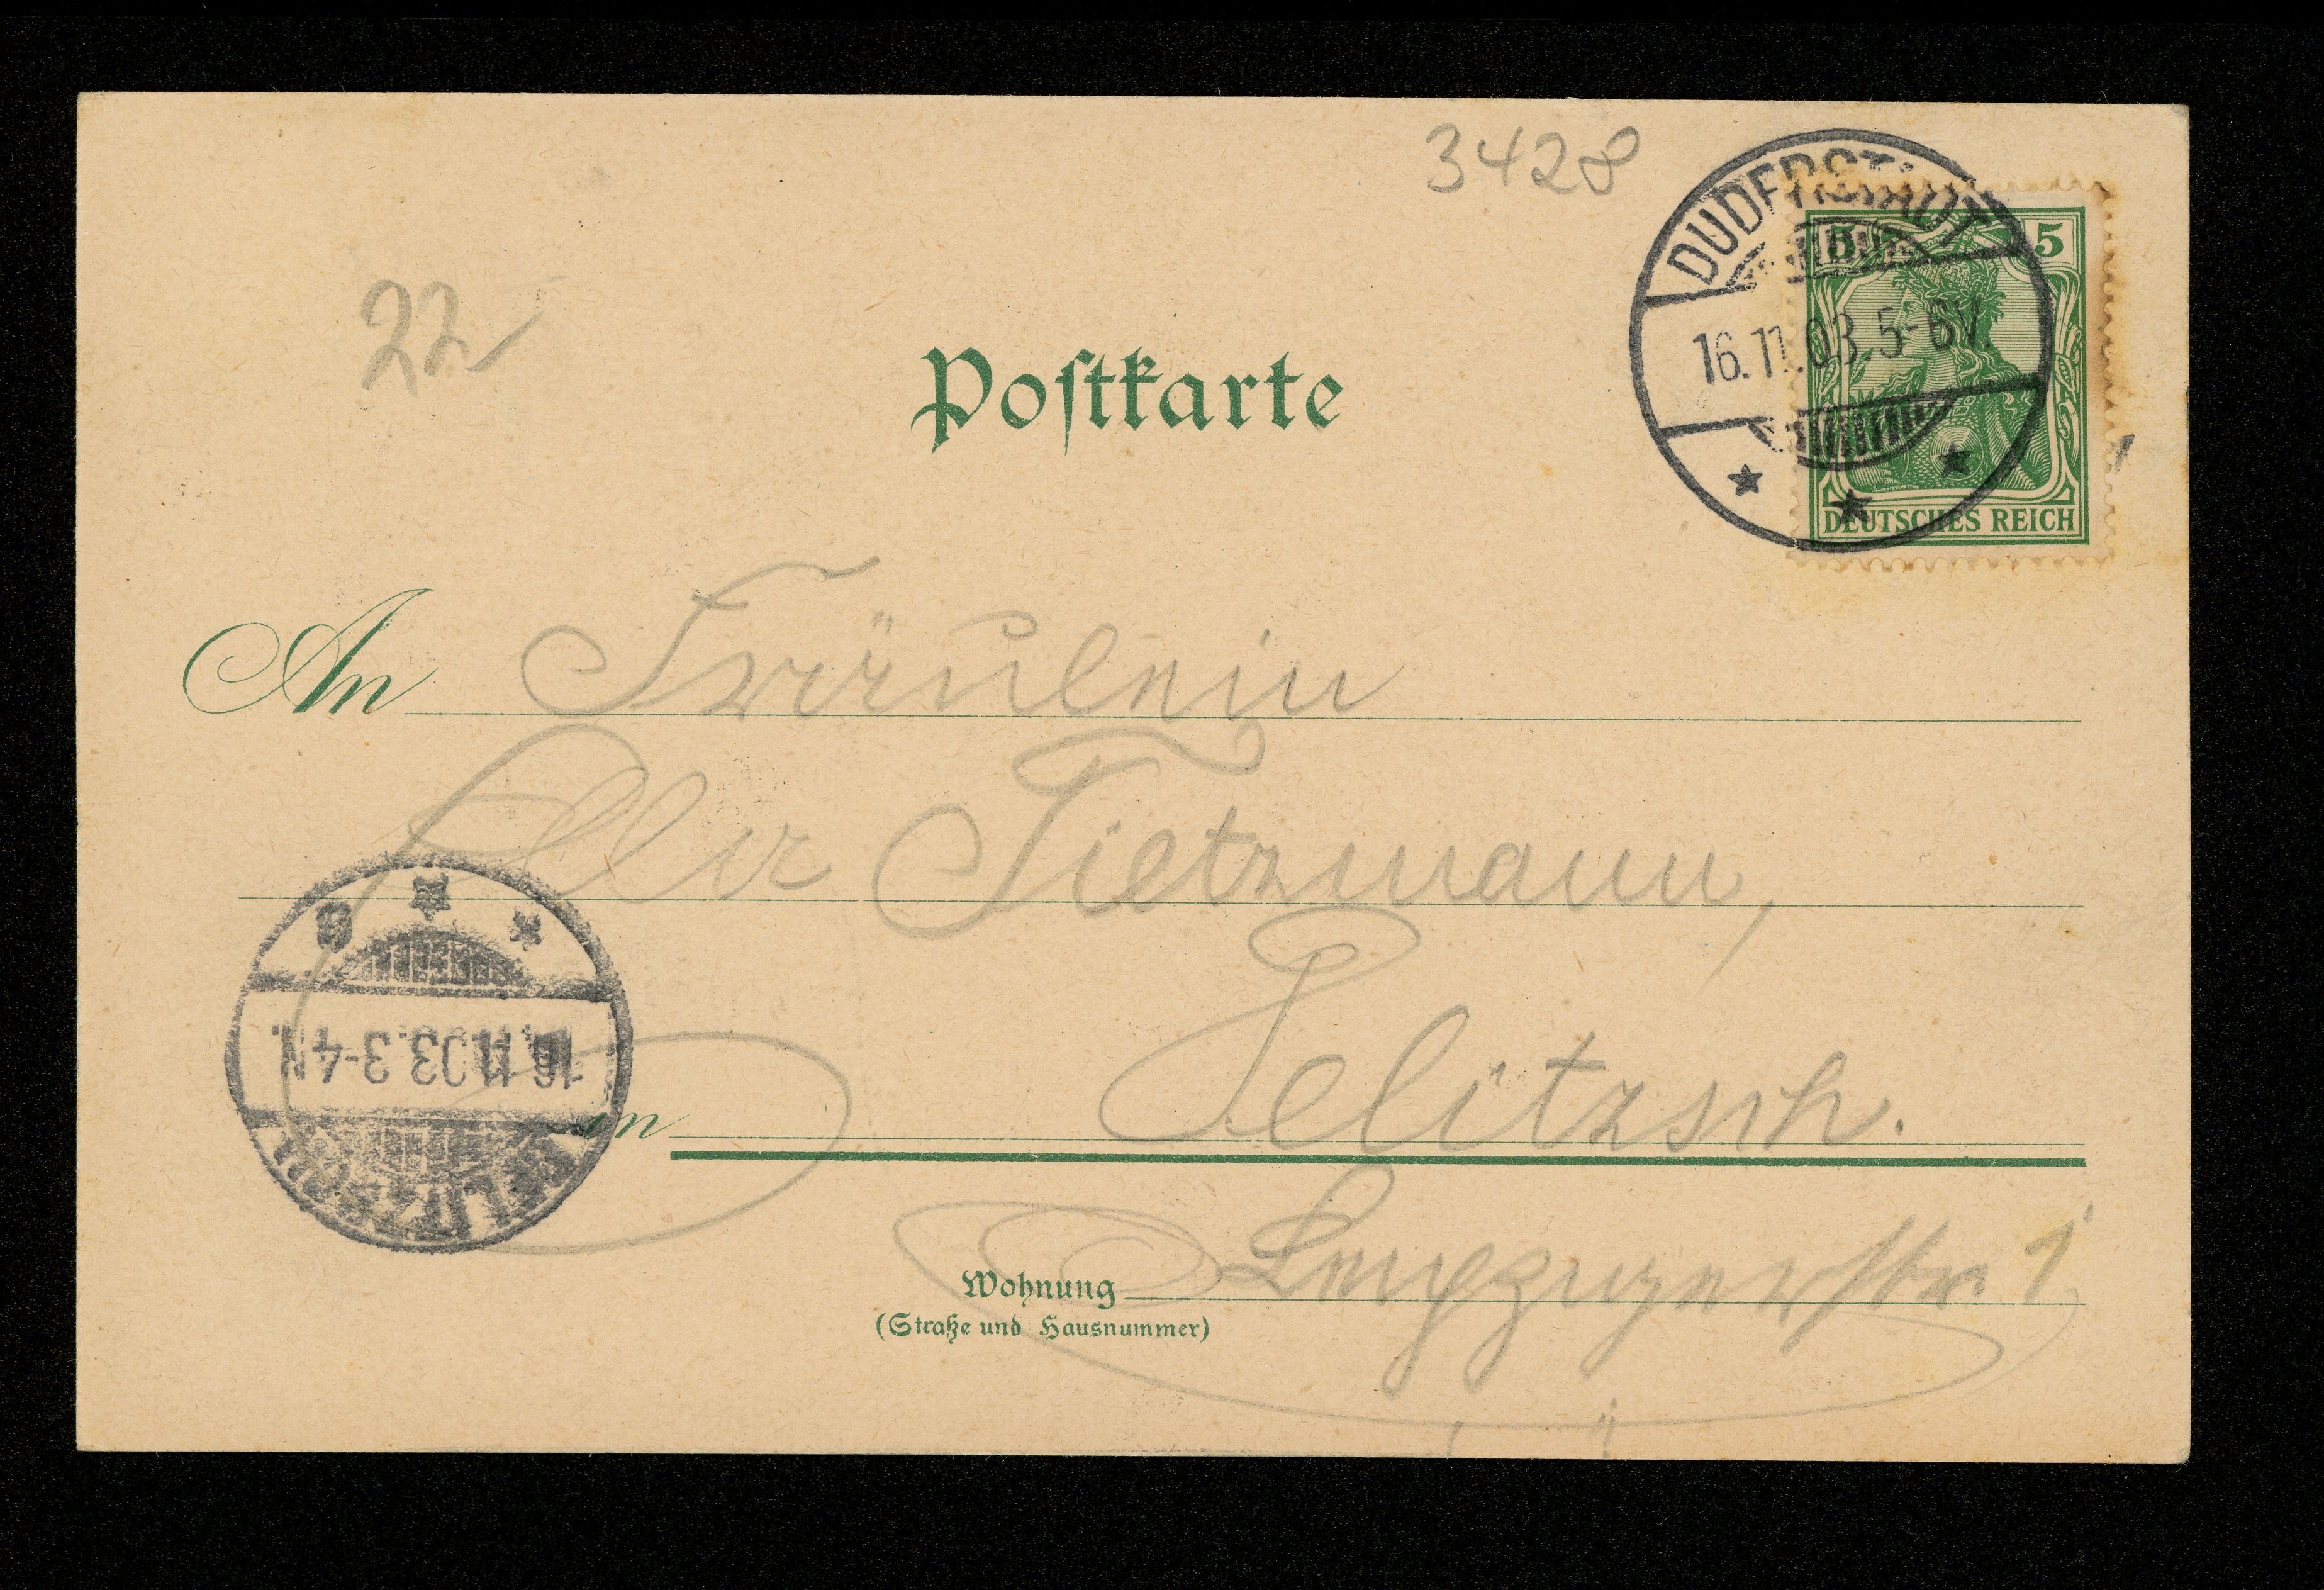 3428
DUDERSTADT
16.11.03. 5-6V.
5 5
DEUTSCHES REICH
22
Postkarte
An Fräulein
Ella Tietzmann,
in Delitzsch.
Wohnung Leipzigerstr. 1
(Straße und Hausnummer)
DELITZSCH
16.11.03. 3-4N.